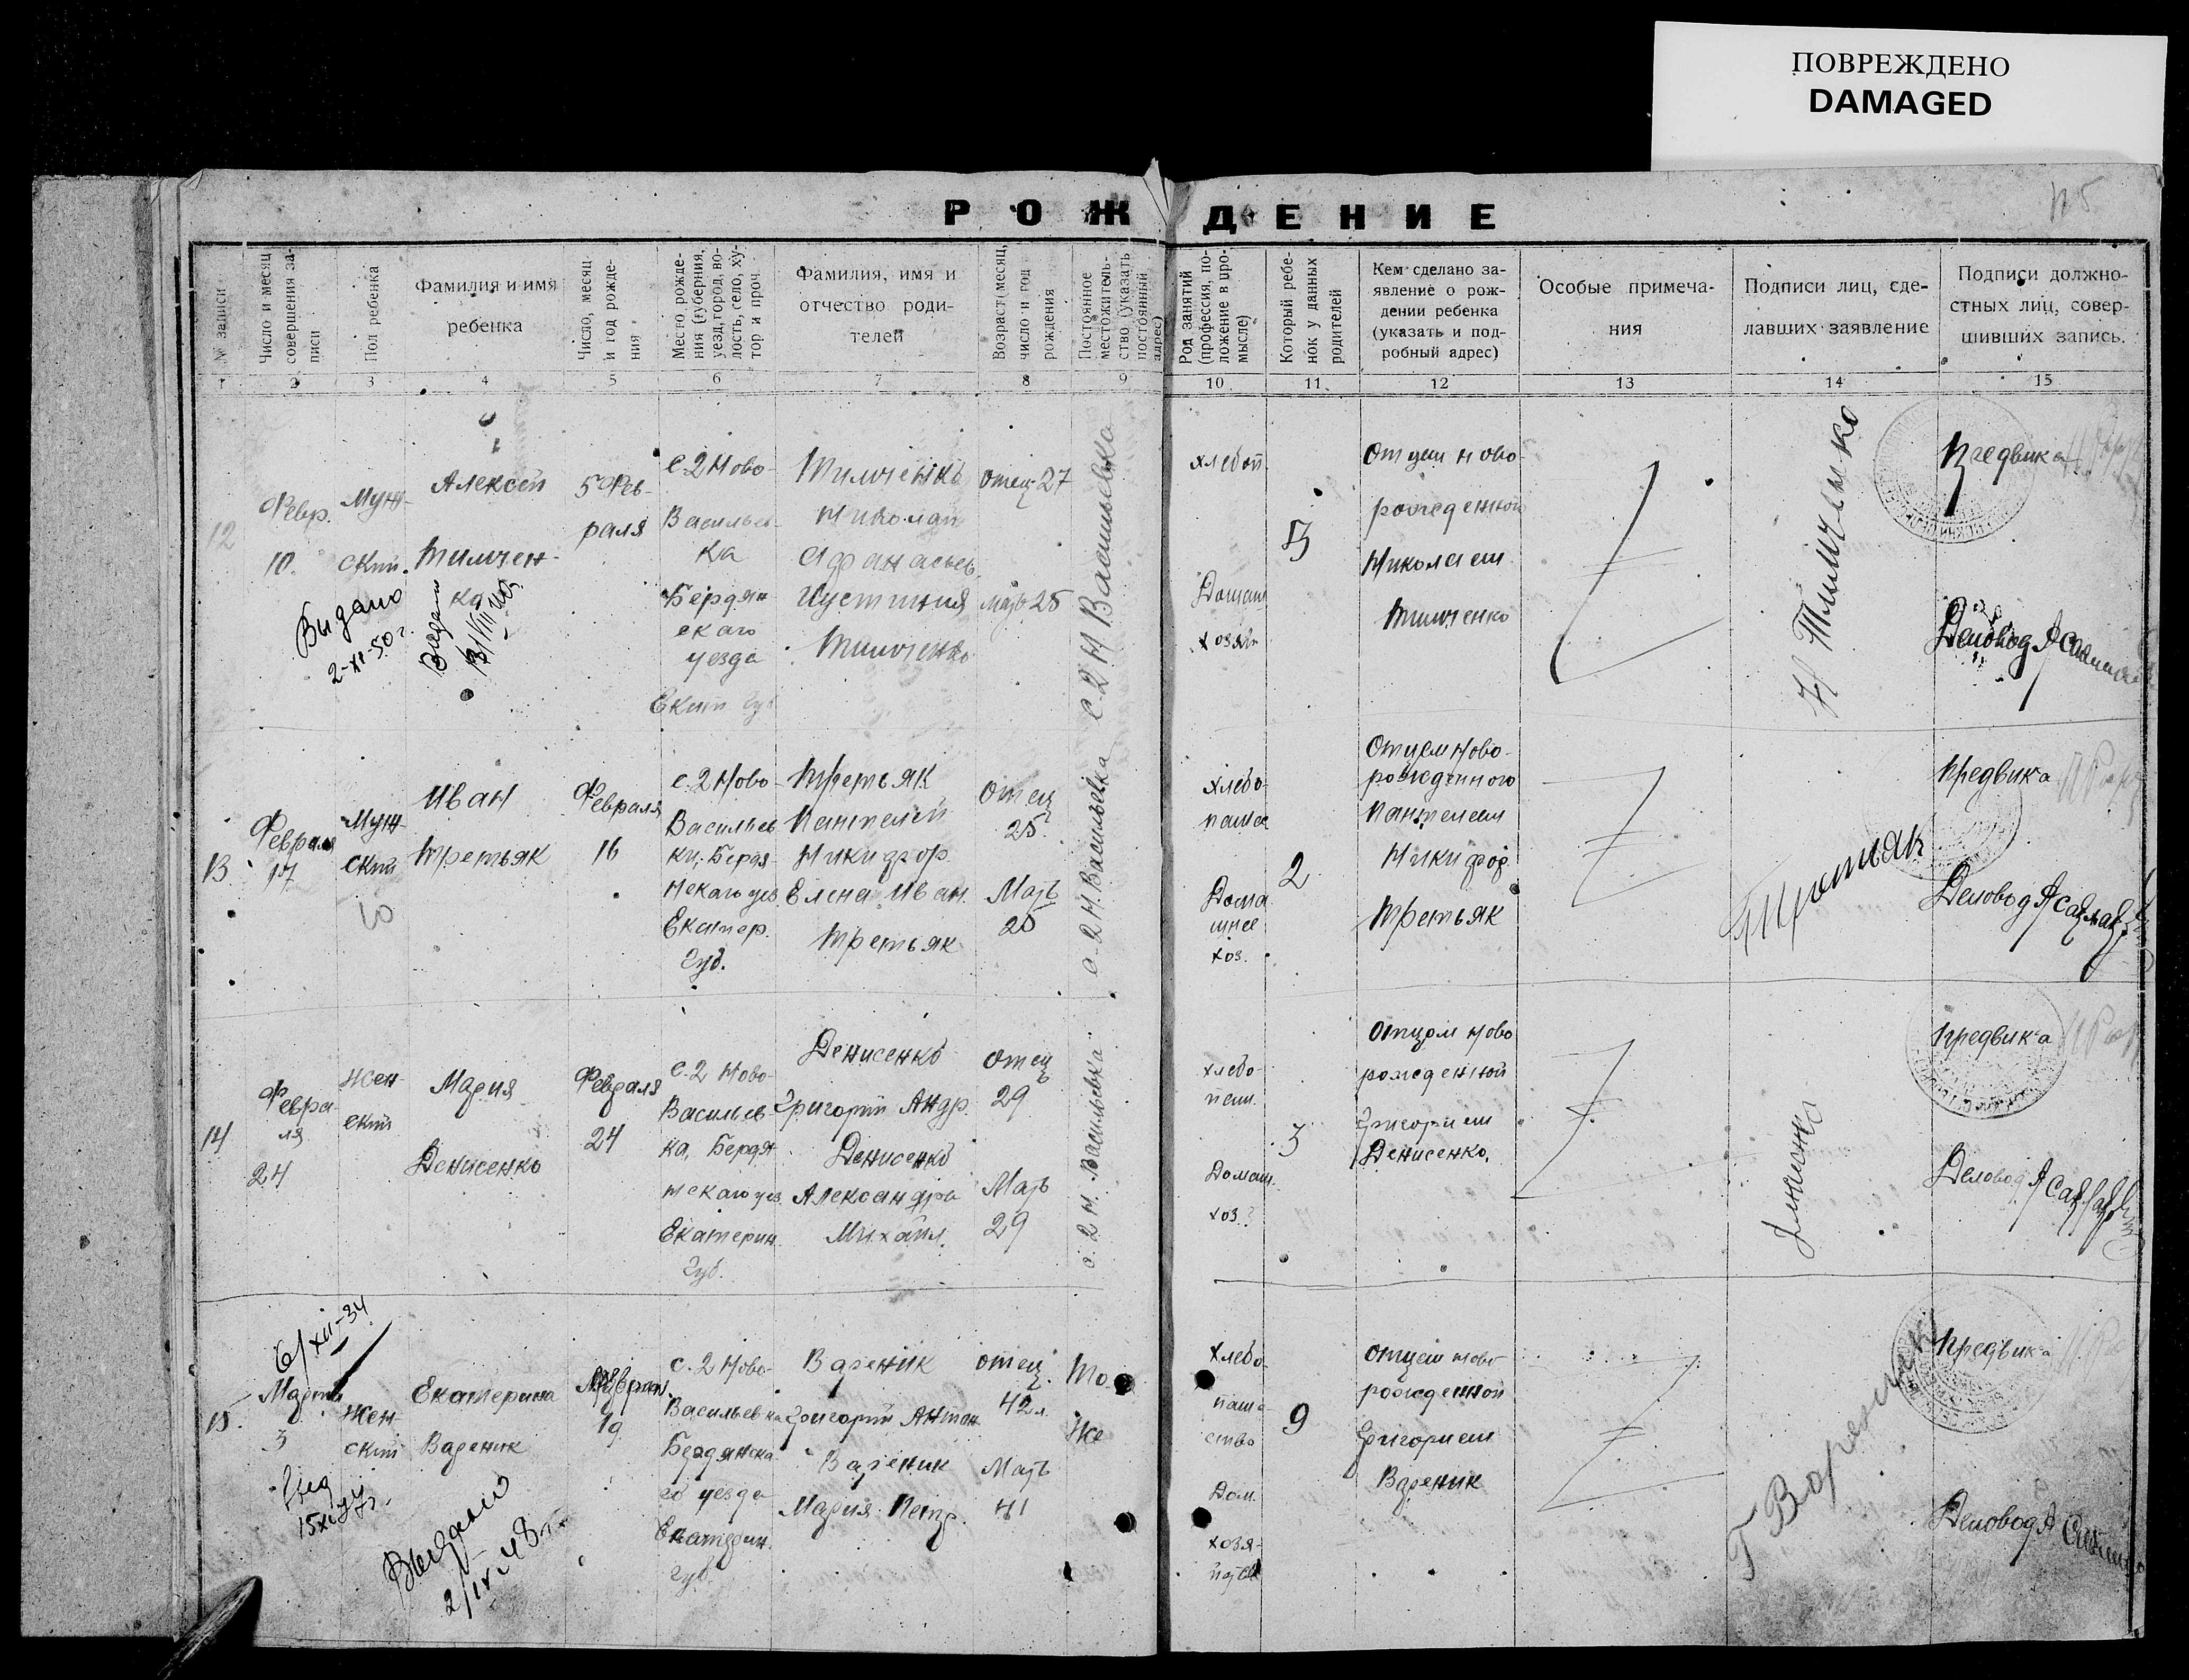 ПОВРЕЖДЕНО
DAMAGED
РОЖДЕНИЕ
№ записи
Число и месяц
совершения за-
писи
Пол ребенка
Фамилия и имя
ребенка
Число, месяц
и год рожде-
ния
Место рожде-
ния (губерния,
уезд, город, во-
лость, село, ху-
тор и проч
Фамилия, имя и
отчество роди-
телей
Возраст (месяц,
число и год
рождения
Постоянное
местожитель-
ство (указать
постоянный
адрес)
Род занятий
(профессия, по-
ложение в про-
мысле)
Который ребе-
нок у данных
родителей
Кем сделано за-
явление о рож-
дении ребенка
(указать и под-
робный адрес)
Особые примеча-
ния
Подписи лиц, сде-
лавших заявление
Подписи должно-
стных лиц, совер-
шивших запись.
1 2 3 4 5 6 7 8 9 10 11 12 13 14 15
12
Февр.
10.
Муж-
ский.
Алексей
Тимчен-
ко
5 Фев-
раля
с. 2 Ново-
Васильев-
ка
Бердян
скаго
уезда
Екат губ
Тимченко
Николай
Афанасьев.
Иустиния
Тимченко
Отец 27
Мать 25
с. 2 Н Васильевка
хлебоп.
Домаш
хозяй
Отцем ново-
рожденной
Николаем
Тимченко
Н Тимченко
Предвика
Деловод
Выдано
2-XI-50 г.
13
Февраля
17
Муж-
ский
Иван
Третьяк
Февраля
16
с. 2 Ново-
Васильев
ки, Бердя-
нскаго уез.
Екатер.
Губ.
Третьяк
Пантелей
Никифор.
Елена Иван.
Третьяк
Отец
25
Мать
25
с. 2 Н. Васильевка
хлебо-
пашец
Дома
шнее
хоз.
2
Отцем Ново-
рожденного
Пантелеем
Никифор
Третьяк
Третьяк
Предвика
Деловод
14
Февра-
ля
24
Жен-
ский
Мария
Денисенко
Февраля
24
с. 2 Ново-
Васильев-
ка, Бердя
нскаго уез.
Екатерин.
Губ.
Денисенко
Григорий Андр.
Денисенко
Александра
Михайл.
Отец
29
Мать
29
с. 2 Н. Васильевка
хлебо-
паш.
Домаш.
хоз.
3
Отцом ново
рожденной
Григорием
Денисенко.
Предвика
Деловод
6/XII-34
15
Март
3
Жен-
ский
Екатерина
Вареник
Феврал.
19
с. 2 Ново-
Васильевка
Бердянска
го уезда
Екатерин.
губ.
Вареник
Григорий Антон
Вареник
Мария Петр.
отец.
42 л.
Мать
41
То
же
Хлебо-
паше
ство
Дом.
хозя-
йство
9
отцем ново
рожденной
Григорием
Вареник
Г Вареник
Предвика
Деловод
Выдано
2/IX 48 г.